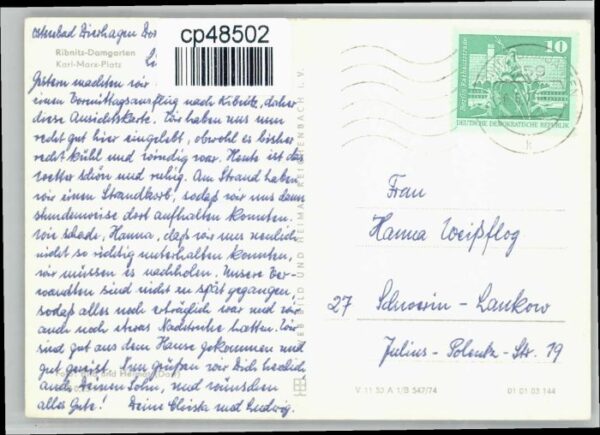 Ostseebad Dierhagen Dorf
cp48502
Ribnitz-Damgarten
Karl-Marx-Platz
Gestern machten wir
einen Vormittagsausflug nach Ribnitz, daher
diese Ansichtskarte. Wir haben uns nun
recht gut hier eingelebt, obwohl es bisher
recht kühl und windig war. Heute ist das
Wetter schön und ruhig. Am Strand haben
wir einen Strandkorb, sodaß wir uns dann
stundenweise dort aufhalten konnten.
Wie schade, Hanna, daß wir uns neulich
nicht so richtig unterhalten konnten,
wir müssen es nachholen. Unsere Ver-
wandten sind nicht zu spät gegangen,
sodaß alles noch erträglich war und wir
auch noch etwas Nachtruhe hatten. Wir
sind gut aus dem Hause gekommen und
gut gereist. Nun grüßen wir Dich herzlich
auch Deinen Sohn, und wünschen
alles Gute! Deine Christa und Ludwig.
BILD UND HEIMAT REICHENBACH i. V.
10
DEUTSCHE DEMOKRATISCHE REPUBLIK
Frau
Hanna Weißflog
27 Schwerin - Lankow
Julius-Polentz-Str. 19
V 11 50 A 1/B 547/74 01 01 03 144